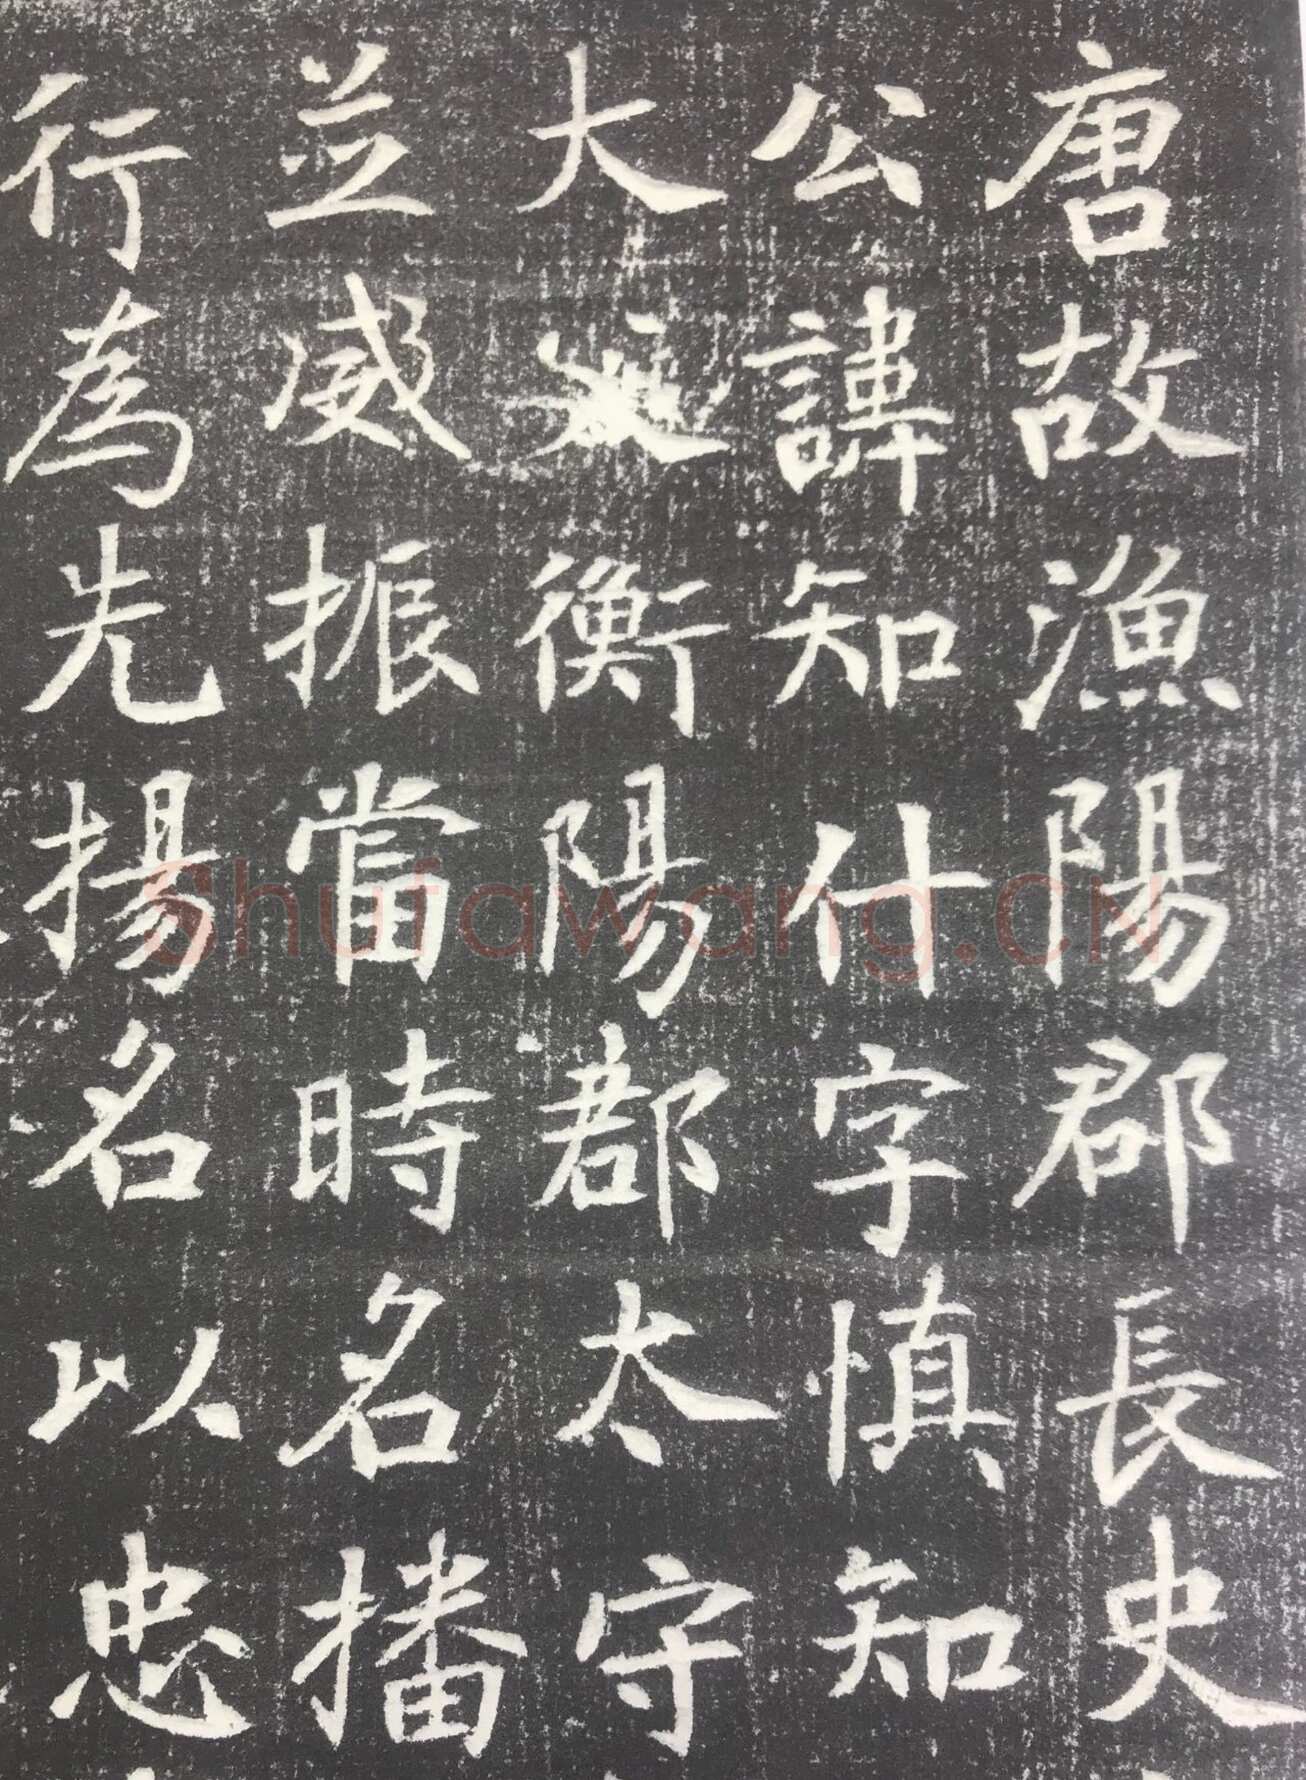 唐故漁陽郡長史
公諱知什字慎知
大衡陽郡太守
並威振當時名播
行為先揚名以忠
Shufawang.CN